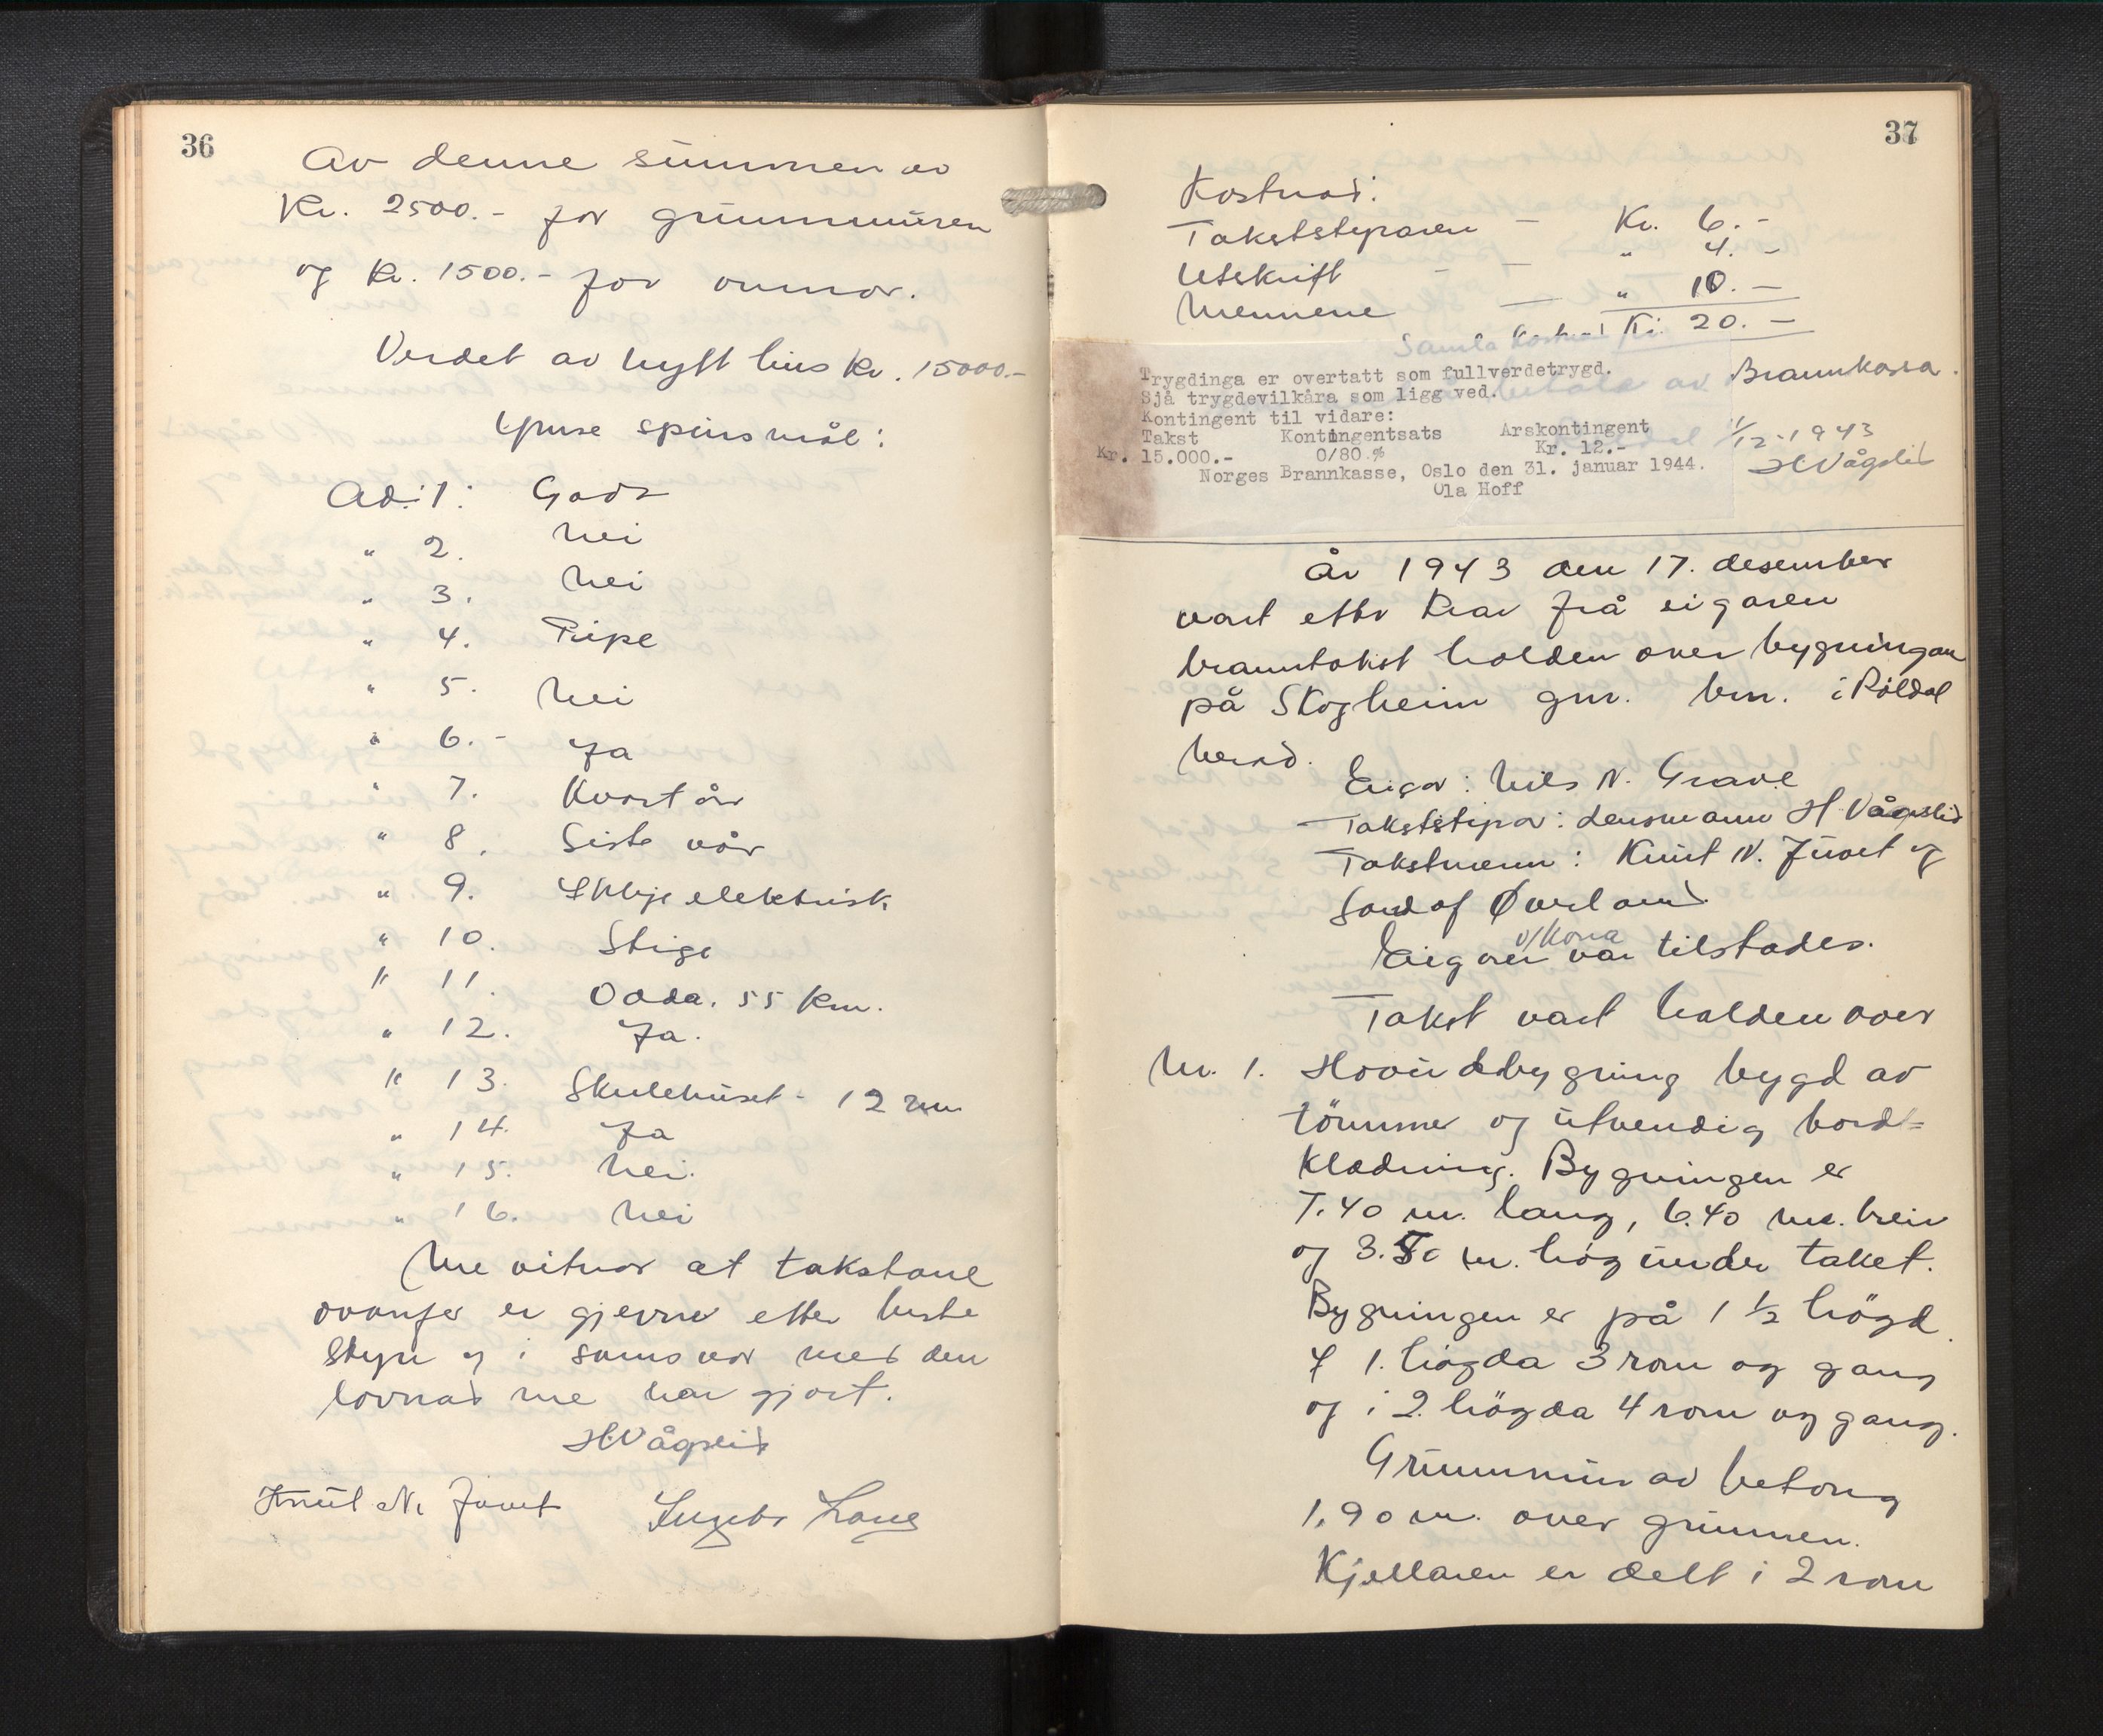 36
Av denne summen av
Kr. 2500.- for grunnmuren
og Kr. 1500.- for omnar.
Verdet av nytt hus Kr. 15000.-
Ymse spursmål:
Ad: 1: Godt
" 2. Nei
" 3. Nei
" 4. Pipe
" 5. Nei
" 6.- Ja
" 7. Kvart år
" 8. Siste vår
" 9. elektrisk
" 10. Stige
" 11. Odda. 55 km.
" 12. Ja.
" 13. Skulehuset - 12 m
" 14. Ja
" 15. Nei.
" 16. Nei
Me vitnar at takstane
ovanfor er gjevne etter beste
skyn og i samsvar med den
lovnad me har gjort.
H Vågslid
Knut N. Juvet
37
Kostnad:
Takststyraren - Kr. 6.-
Utskrift - - " 4.-
Mennene - " 10.-
Samla Kostnad Kr. 20.-
Trygdinga er overtatt som fullverdetrygd.
Sjå trygdevilkåra som ligg ved.
av Brannkassa.
Kontingent til vidare:
Takst Kontingentsats Arskontingent
Kr. 15.000.- 0/80 % Kr. 12.-
1/12-1943
Norges Brannkasse, Oslo den 31. januar 1944.
H Vågslid
Ola Hoff
År 1943 den 17. desember
vart ettr krav frå eigaren
branntakst halden over bygningane
på Skogheim gnr. bnr. i Röldal
herad.
Eigar: Nils N. Grave
Takststyrar: Lensmann H Vågslid
Takstmenn: Knut N. Juvet og
Gardof Øverland.
v/Kona
Eigaren var tilstades.
Takst vart halden over
Nr. 1. Hovudbygning bygd av
tömmer og utvendig bord-
klædning. Bygningen er
7.40 m. lang, 6.40 m. brei
og 3.50 m. høg under taket.
Bygningen er på 1 1/2 högd.
I 1. högda 3 rom og gang
og i 2. högda 4 rom og gang.
Grunnmur av betong
1,90 m. over grunnen.
Kjellaren er delt i 2 rom